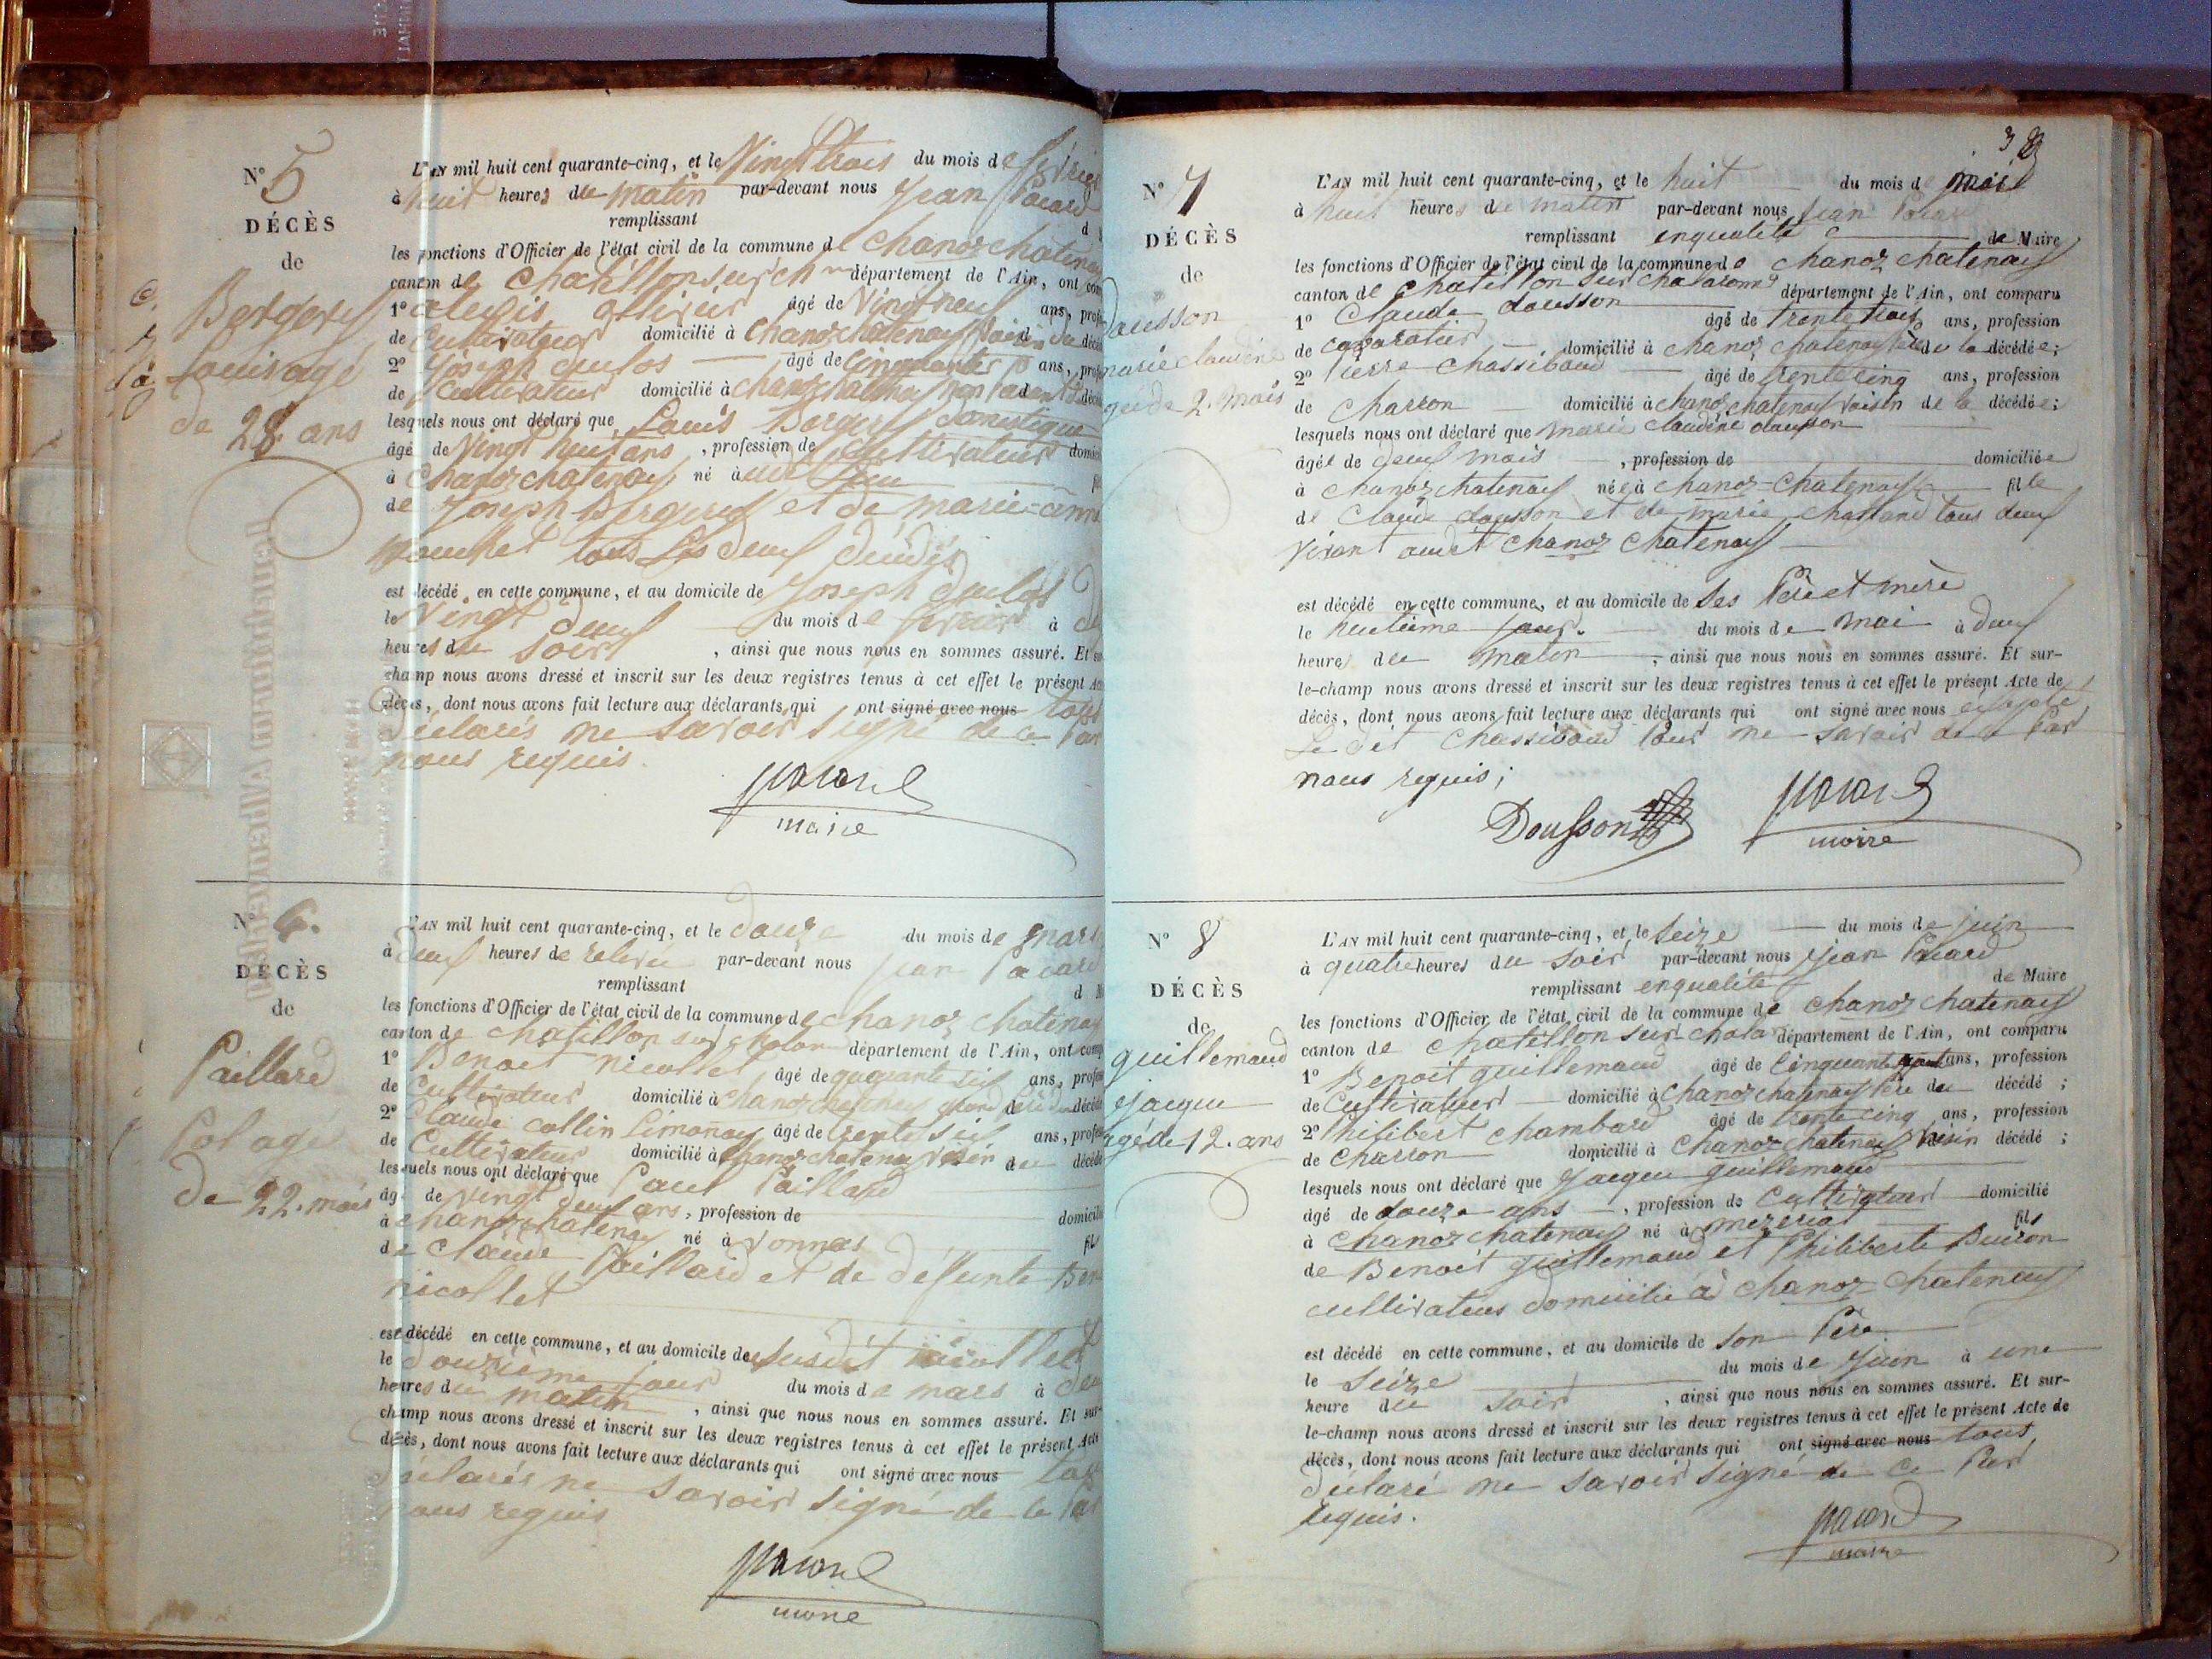 N° 5
DÉCÈS
de
Bergery
Louis agé
de 28 ans
L'AN mil huit cent quarante-cinq, et le Vingt trois du mois de
à huit heures du matin par-devant nous Jean Pacard
remplissant
les fonctions d'Officier de l'état civil de la commune de Chanoz chatenay
canton de Chatillon sur ch département de l'Ain, ont
1° alexis ollivier âgé de Vingt neuf ans,
de Cultivateur domicilié à Chanoz chatenay Voisin du
2° Joseph âgé de Cinquante ans,
de Cultivateur domicilié à chanoz chatenay
lesquels nous ont déclaré que Louis Bergery domestique
âgé de Vingt huit ans, profession de Cultivateur
à Chanoz chatenay né à
de Joseph Bergery et de marie-anne
tous les deux
est décédé en cette commune, et au domicile de Joseph
le Vingt deux du mois de fevrier à
heures du Soir, ainsi que nous nous en sommes assuré. Et
champ nous avons dressé et inscrit sur les deux registres tenus à cet effet le présent
décès, dont nous avons fait lecture aux déclarants qui ont signé avec nous
déclarés ne savoir signé de ce Par
nous requis.
pacard
maire
N° 6.
DÉCÈS
de
Paillard
Pol age
de 22. mois
L'AN mil huit cent quarante-cinq, et le douze du mois de mars
à deux heures de relevée par-devant nous Jean Pacard
remplissant
les fonctions d'Officier de l'état civil de la commune de chanoz chatenay
canton de chatillon sur département de l'Ain, ont
1° Benoit nicollet âgé de quarante six ans,
de Cultivateur domicilié à chanoz chatenay grand Père du
2° Claude collin Limonay âgé de trente six ans,
de Cultivateur domicilié à chanoz chatenay voisin du
lesquels nous ont déclaré que Paul Paillard
âgé de vingt deux ans, profession de
à chanoz chatenay né à Vonnas
de Claude Paillard et de defunte
nicollet
est décédé en cette commune, et au domicile du susdit nicollet
le douzieme jour du mois de mars à
heures du matin, ainsi que nous nous en sommes assuré. Et sur-
champ nous avons dressé et inscrit sur les deux registres tenus à cet effet le présent Acte
décès, dont nous avons fait lecture aux déclarants qui ont signé avec nous
déclarés ne savoir signé de ce Par
nous requis
pacard
maire
38
N° 7
DÉCÈS
de
dousson
marie claudine
agée de 2. mois
L'AN mil huit cent quarante-cinq, et le huit du mois de mai
à huit heures du matin par-devant nous Jean Pacard
remplissant enqualité de Maire
les fonctions d'Officier de l'état civil de la commune de chanoz chatenay
canton de chatillon sur chalaronne département de l'Ain, ont comparu
1° Claude dousson âgé de trente trois ans, profession
de cabaratier domicilié à chanoz chatenay Père de la décédée;
2° Pierre Chassiboud âgé de trente cinq ans, profession
de Charron domicilié à chanoz chatenay voisin de la décédée;
lesquels nous ont déclaré que marie claudine dousson
âgée de deux mois, profession de domiciliée
à chanoz chatenay née à chanoz-Chatenay fille
de Claude dousson et de marie chattand tous deux
vivant audit chanoz chatenay
est décédé en cette commune, et au domicile de Ses Père et mère
le huitième jour du mois de mai à deux
heures du matin, ainsi que nous nous en sommes assuré. Et sur-
le-champ nous avons dressé et inscrit sur les deux registres tenus à cet effet le présent Acte de
décès, dont nous avons fait lecture aux déclarants qui ont signé avec nous
Le dit Chassiboud Pour ne savoir de ce Par
nous requis;
Dousson
pacard
maire
N° 8
DÉCÈS
de
guillemaud
Jacque
agé de 12. ans
L'AN mil huit cent quarante-cinq, et le Seize du mois de juin
à quatre heures du soir par-devant nous Jean Pacard
remplissant enqualité de Maire
les fonctions d'Officier de l'état civil de la commune de chanoz chatenay
canton de chatillon sur chala département de l'Ain, ont comparu
1° Benoit guillemaud âgé de Cinquante ans, profession
de Cultivateur domicilié à chanoz chatenay Père du décédé;
2° Philibert Chambard âgé de trente cinq ans, profession
de Charron domicilié à chanoz chatenay Voisin décédé;
lesquels nous ont déclaré que Jacque guillemaud
âgé de douze ans, profession de Cultivateur domicilié
à Chanoz chatenay né à mezériat fils
de Benoit guillemaud et Philiberte Buiron
cultivateurs domicilié à chanoz chatenay
est décédé en cette commune, et au domicile de son Père
le Seize du mois de Juin à une
heure du soir, ainsi que nous nous en sommes assuré. Et sur-
le-champ nous avons dressé et inscrit sur les deux registres tenus à cet effet le présent Acte de
décès, dont nous avons fait lecture aux déclarants qui ont signé avec nous tous
déclaré ne savoir signé de ce Par
requis.
pacard
maire